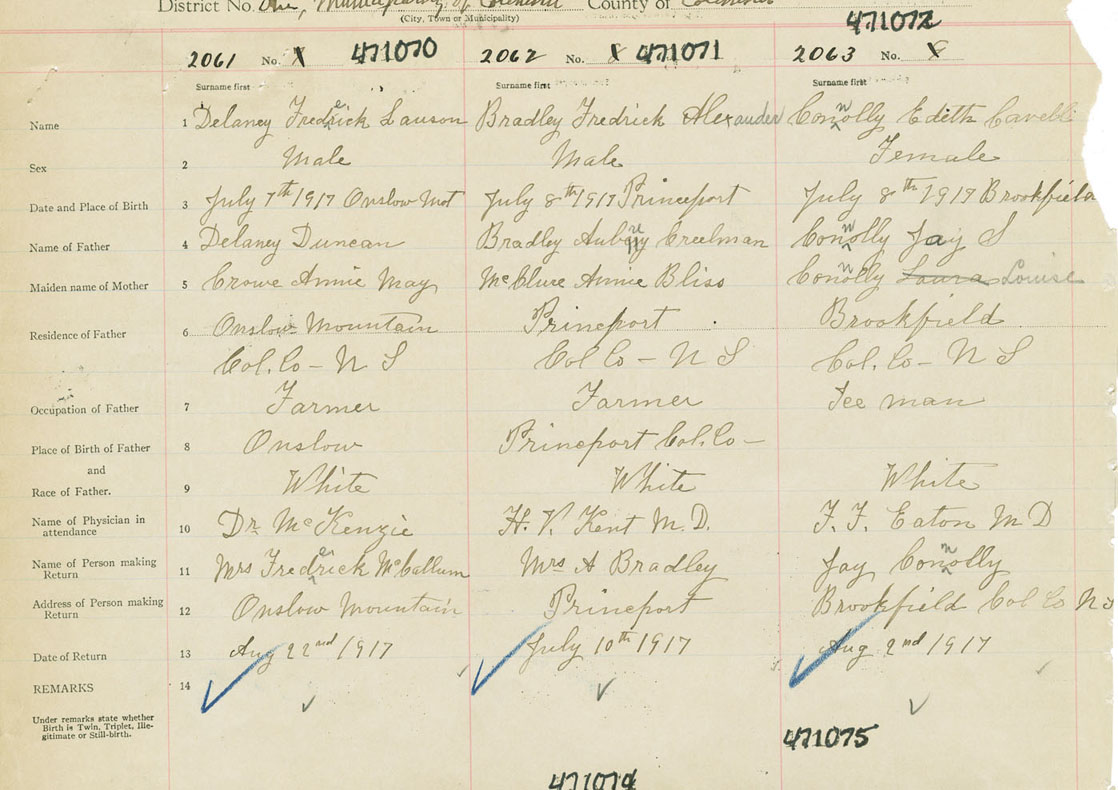 District No. One, Municipality of Colchester County of Colchester
(City, Town or Municipality)
471072
2061 No. X 471070 2062 No. 8 471071 2063 No. 8
Surname first Surname first Surname first
Name 1 Delaney Frederick Lauson Bradley Fredrick Alexander Connolly Edith Cavell
Sex 2 Male Male Female
Date and Place of Birth 3 July 7th 1917 Onslow Mot July 8th 1917 Princeport July 8th 1917 Brookfield
Name of Father 4 Delaney Duncan Bradley Aubrey Creelman Connolly Jay S
Maiden name of Mother 5 Crowe Annie May McClure Annie Bliss Connolly Laura Louise
Residence of Father 6 Onslow Mountain Princeport Brookfield
Col. Co - N S Col Co - N S Col. Co - N S
Occupation of Father 7 Farmer Farmer Tee man
Place of Birth of Father 8 Onslow Princeport Col. Co -
and
Race of Father. 9 White White White
Name of Physician in attendance 10 Dr. McKenzie H. V. Kent M.D. F. F. Eaton M D
Name of Person making Return 11 Mrs Frederick McCallum Mrs A Bradley Jay Connolly
Address of Person making Return 12 Onslow Mountain Princeport Brookfield Col Co N S
Date of Return 13 Aug 22nd 1917 July 10th 1917 Aug 2nd 1917
REMARKS 14
Under remarks state whether
Birth is Twin, Triplet, Ille-
gitimate or Still-birth.
471075
471074